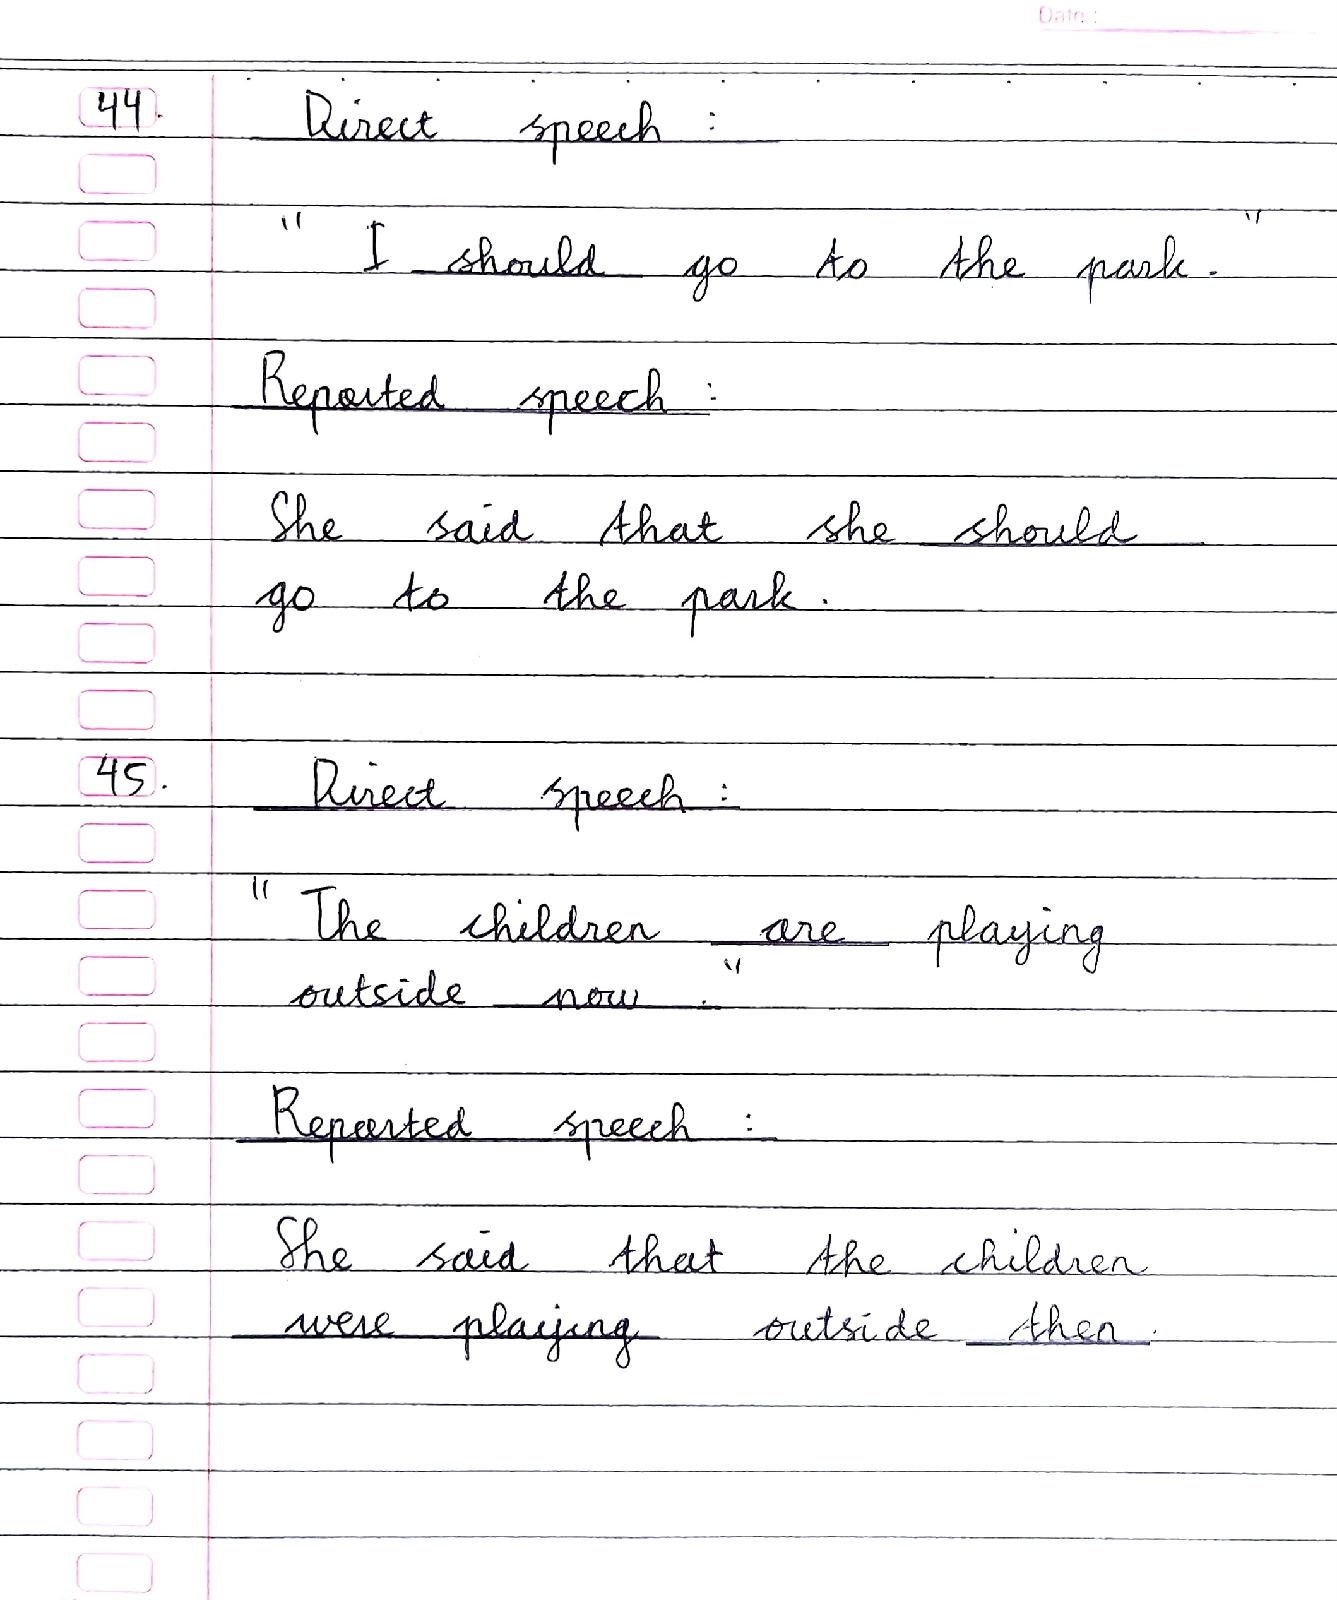 Date :
44. Direct speech :
" I should go to the park. "
Reported speech :
She said that she should
go to the park.
45. Direct speech :
" The children are playing
outside now. "
Reported speech :
She said that the children
were playing outside then.